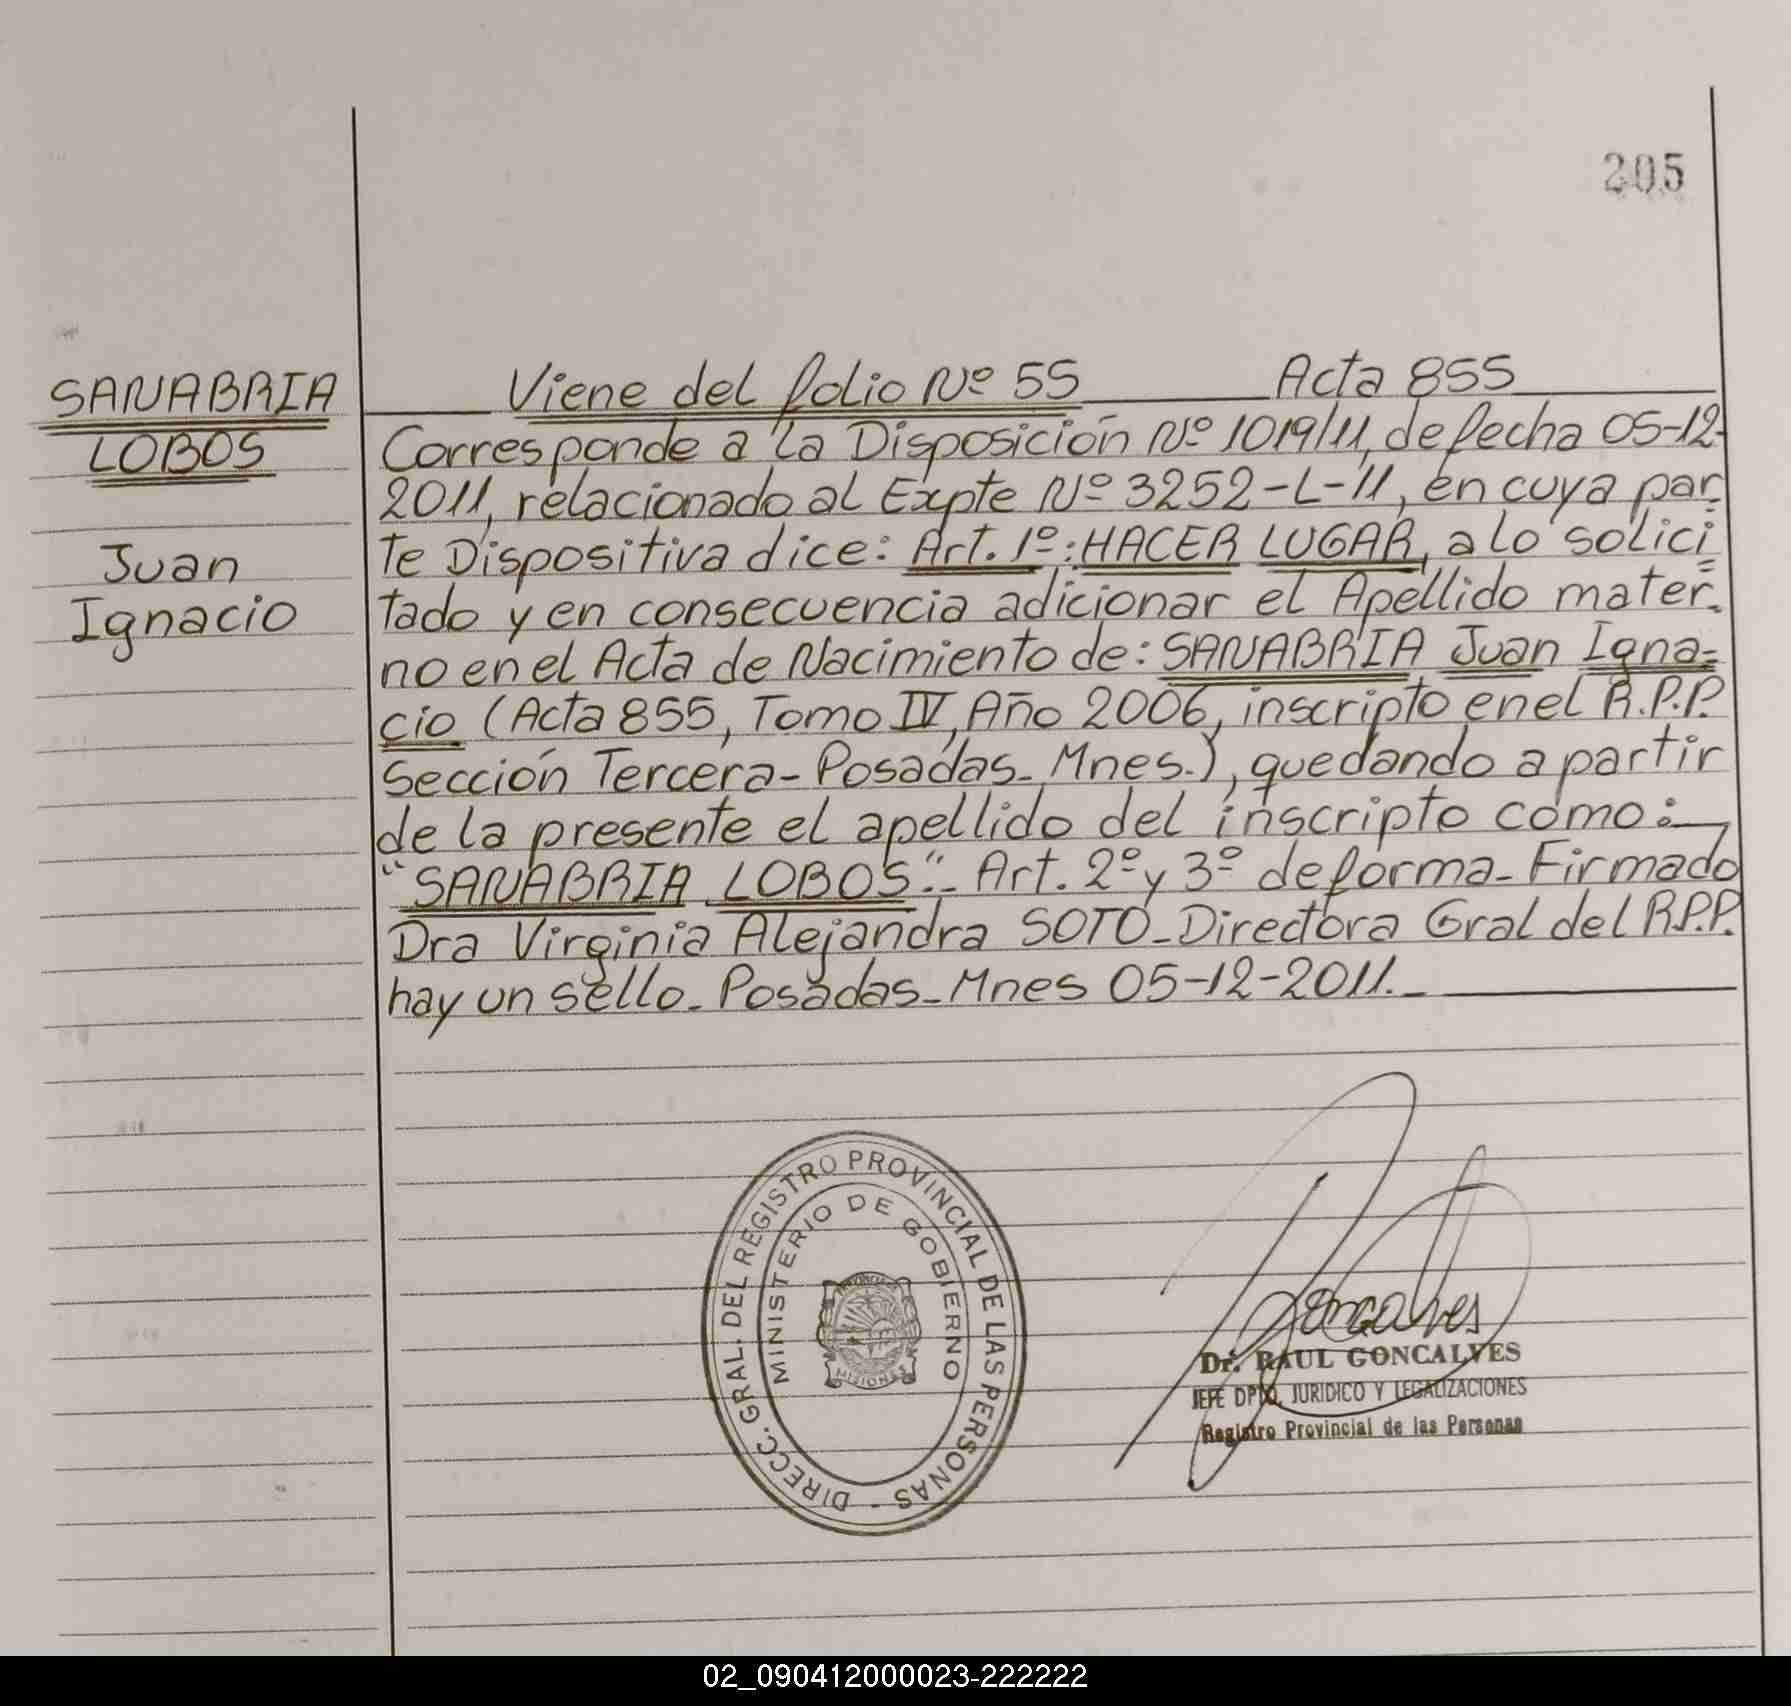 205
SANABRIA
LOBOS
Juan
Ignacio
Viene del folio Nº 55 Acta 855
Corresponde a la Disposición Nº 1019/11, de fecha 05-12-
2011, relacionado al Expte Nº 3252-L-11, en cuya par
te Dispositiva dice: Art. 1º: HACER LUGAR, a lo solici
tado y en consecuencia adicionar el Apellido mater-
no en el Acta de Nacimiento de: SANABRIA Juan Igna=
cio (Acta 855, Tomo IV, Año 2006, inscripto en el R.P.P.
Sección Tercera- Posadas- Mnes.), quedando a partir
de la presente el apellido del inscripto como:
"SANABRIA LOBOS".- Art. 2º y 3º de forma- Firmado
Dra Virginia Alejandra SOTO- Directora Gral del R.P.P.
hay un sello- Posadas- Mnes 05-12-2011.-
DIRECC. GRAL. DEL REGISTRO PROVINCIAL DE LAS PERSONAS -
MINISTERIO DE GOBIERNO
MISIONES
Goncalves
Dr. RAUL GONCALVES
JEFE DPTO. JURIDICO Y LEGALIZACIONES
Registro Provincial de las Personas
02_090412000023-222222